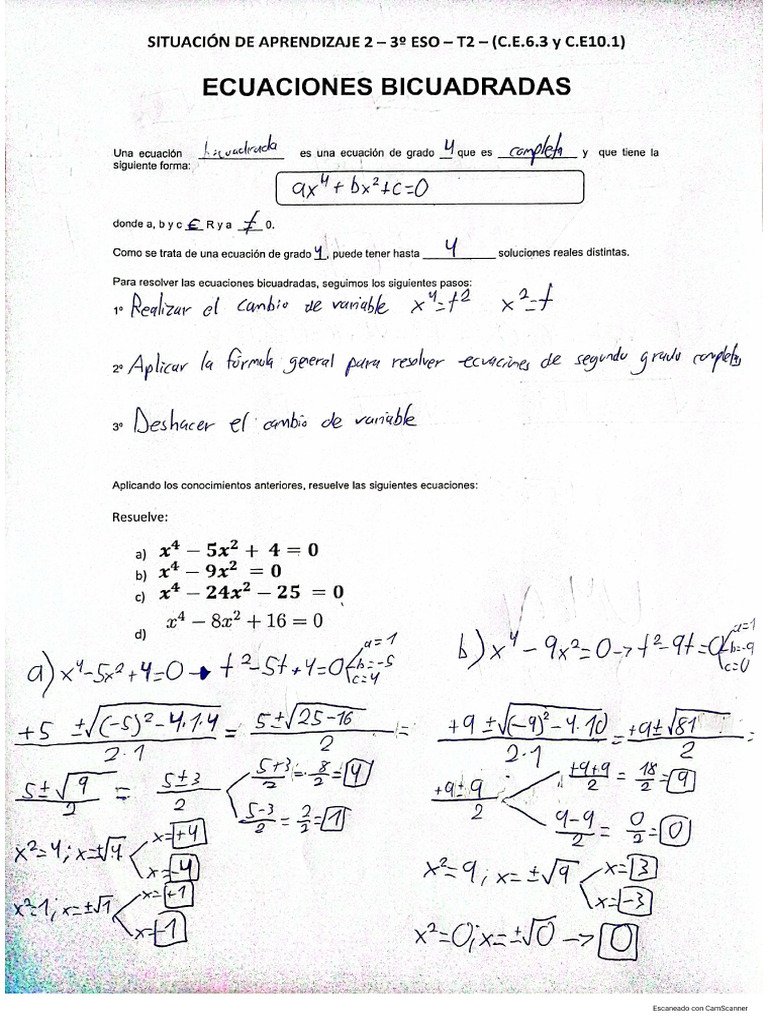 SITUACIÓN DE APRENDIZAJE 2 – 3º ESO – T2 – (C.E.6.3 y C.E10.1)
ECUACIONES BICUADRADAS
Una ecuación bicuadrada es una ecuación de grado 4 que es completa y que tiene la
siguiente forma:
ax⁴ + bx² + c = 0
donde a, b y c € R y a ≠ 0.
Como se trata de una ecuación de grado 4, puede tener hasta 4 soluciones reales distintas.
Para resolver las ecuaciones bicuadradas, seguimos los siguientes pasos:
1º Realizar el cambio de variable x⁴=t² x²=t
2º Aplicar la fórmula general para resolver ecuaciones de segundo grado completas
3º Deshacer el cambio de variable
Aplicando los conocimientos anteriores, resuelve las siguientes ecuaciones:
Resuelve:
a) x⁴ − 5x² + 4 = 0
b) x⁴ − 9x² = 0
c) x⁴ − 24x² − 25 = 0
d) x⁴ − 8x² + 16 = 0
a) x⁴-5x²+4=0 → t²-5t+4=0 a=1 b=-5 c=4
+5 ±√(-5)²-4·1·4 / 2·1 = 5±√25-16 / 2 =
5±√9 / 2 = 5±3 / 2
5+3/2 = 8/2 = 4
5-3/2 = 2/2 = 1
x²=4; x=±√4 x=+4
x=-4
x²=1; x=±√1 x=+1
x=-1
b) x⁴-9x²=0 → t²-9t=0 a=1 b=-9 c=0
+9 ±√(-9)²-4·10 / 2·1 = +9±√81 / 2 =
+9±9 / 2
+9+9/2 = 18/2 = 9
9-9/2 = 0/2 = 0
x²=9; x=±√9 x=3
x=-3
x²=0; x=±√0 → 0
Escaneado con CamScanner